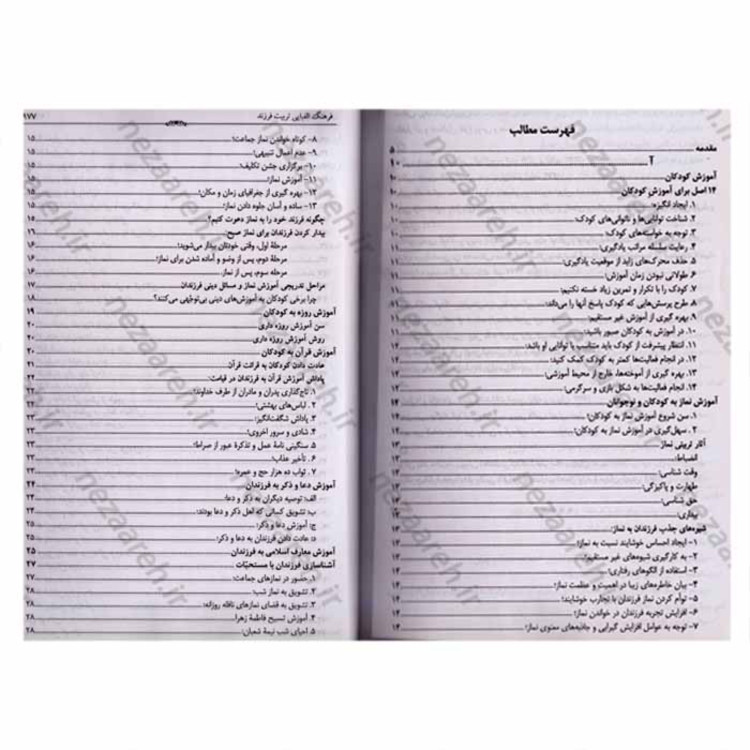 فهرست مطالب
مقدمه ۵
آ ۹۰
آموزش کودکان ۹۰
۱۴ اصل برای آموزش کودکان ۹۰
۱. ایجاد انگیزه: ۱۰
۲. شناخت توانایی‌ها و ناتوانی‌های کودک: ۱۰
۳. توجه به خواسته‌های کودک: ۱۰
۴. رعایت سلسله مراتب یادگیری: ۱۱
۵. حذف محرک‌های زاید از موقعیت یادگیری: ۱۱
۶. طولانی نبودن زمان آموزش: ۱۱
۷. کودک را با تکرار و تمرین زیاد خسته نکنیم: ۱۱
۸. طرح پرسش‌هایی که کودک پاسخ آنها را می‌داند: ۱۱
۹. بهره گیری از آموزش غیر مستقیم: ۱۱
۱۰. در آموزش به کودکان صبور باشید: ۱۱
۱۱. انتظار پیشرفت از کودک باید متناسب با توانایی او باشد: ۱۱
۱۲. در انجام فعالیت‌ها کمتر به کودک کمک کنید: ۱۲
۱۳. بهره گیری از آموخته‌ها، خارج از محیط آموزشی: ۱۲
۱۴. انجام فعالیت‌ها به شکل بازی و سرگرمی: ۱۲
آموزش نماز به کودکان و نوجوانان ۱۲
۱. سن شروع آموزش نماز به کودکان: ۱۲
۲. سهل‌گیری در آموزش نماز به کودکان: ۱۲
آثار تربیتی نماز ۱۳
انضباط: ۱۳
وقت شناسی: ۱۳
طهارت و پاکیزگی: ۱۳
حق شناسی:
بیداری:
شیوه‌های جذب فرزندان به نماز: ۱۳
۱- ایجاد احساس خوشایند نسبت به نماز: ۱۳
۲- به کارگیری شیوه‌های غیر مستقیم: ۱۳
۳- استفاده از الگوهای رفتاری:
۴- بیان خاطره‌های زیبا در اهمیت و عظمت نماز: ۱۴
۵- توأم کردن نماز فرزندان با تجارب خوشایند: ۱۴
۶- افزایش تجربه فرزندان در خواندن نماز: ۱۴
۷- توجه به عوامل افزایش گیرایی و جاذبه‌های معنوی نماز: ۱۴
فرهنگ الفبایی تربیت فرزند ۱۷۷
۸- کوتاه خواندن نماز جماعت: ۱۵
۹- عدم اعمال تنبیهی: ۱۵
۱۰- برگزاری جشن تکلیف: ۱۵
۱۱- آموزش نماز: ۱۵
۱۲- بهره گیری از جغرافیای زمان و مکان: ۱۵
۱۳- ساده و آسان جلوه دادن نماز: ۱۵
چگونه فرزند خود را به نماز دعوت کنیم؟ ۱۵
بیدار کردن فرزندان برای نماز صبح: ۱۶
مرحله اول، وقتی خودتان بیدار می‌شوید: ۱۶
مرحله دوم، پس از وضو و آماده شدن برای نماز: ۱۶
مرحله سوم، پس از نماز. ۱۶
مراحل تدریجی آموزش نماز و مسائل دینی فرزندان ۱۷
چرا برخی کودکان به آموزش‌های دینی بی‌توجهی می‌کنند؟ ۱۸
آموزش روزه به کودکان ۱۹
سن آموزش روزه داری ۲۰
روش آموزش روزه داری ۲۰
آموزش قرآن به کودکان ۲۰
عادت دادن کودکان به قرائت قرآن ۲۱
پاداش آموزش قرآن به فرزندان در قیامت: ۲۲
۱. تاج‌گذاری پدران و مادران از طرف خداوند: ۲۲
۲. لباس‌های بهشتی: ۲۲
۳. پاداش شگفت‌انگیز: ۲۳
۴. شادی و سرور اخروی: ۲۳
۵. سنگینی نامهٔ عمل و تذکرهٔ عبور از صراط: ۲۳
۶. تأخیر عذاب: ۲۳
۷. ثواب ده هزار حج و عمره: ۲۳
آموزش دعا و ذکر به فرزندان ۲۴
الف: توصیه دیگران به ذکر و دعا: ۲۴
ب: تشویق کسانی که اهل ذکر و دعا بودند: ۲۴
ج: آموزش دعا و ذکر: ۲۵
د: عادت دادن فرزندان به دعا و ذکر: ۲۵
آموزش معارف اسلامی به فرزندان ۲۵
آشناسازی فرزندان با مستحبّات ۲۷
۱. حضور در نمازهای جماعت: ۲۷
۲. تشویق به نماز شب: ۲۸
۳. تشویق به قضای نمازهای نافله روزانه: ۲۸
۴. آموزش تسبیح فاطمهٔ زهرا: ۲۸
۵. احیای شب نیمهٔ شعبان: ۲۸
nezaareh.ir